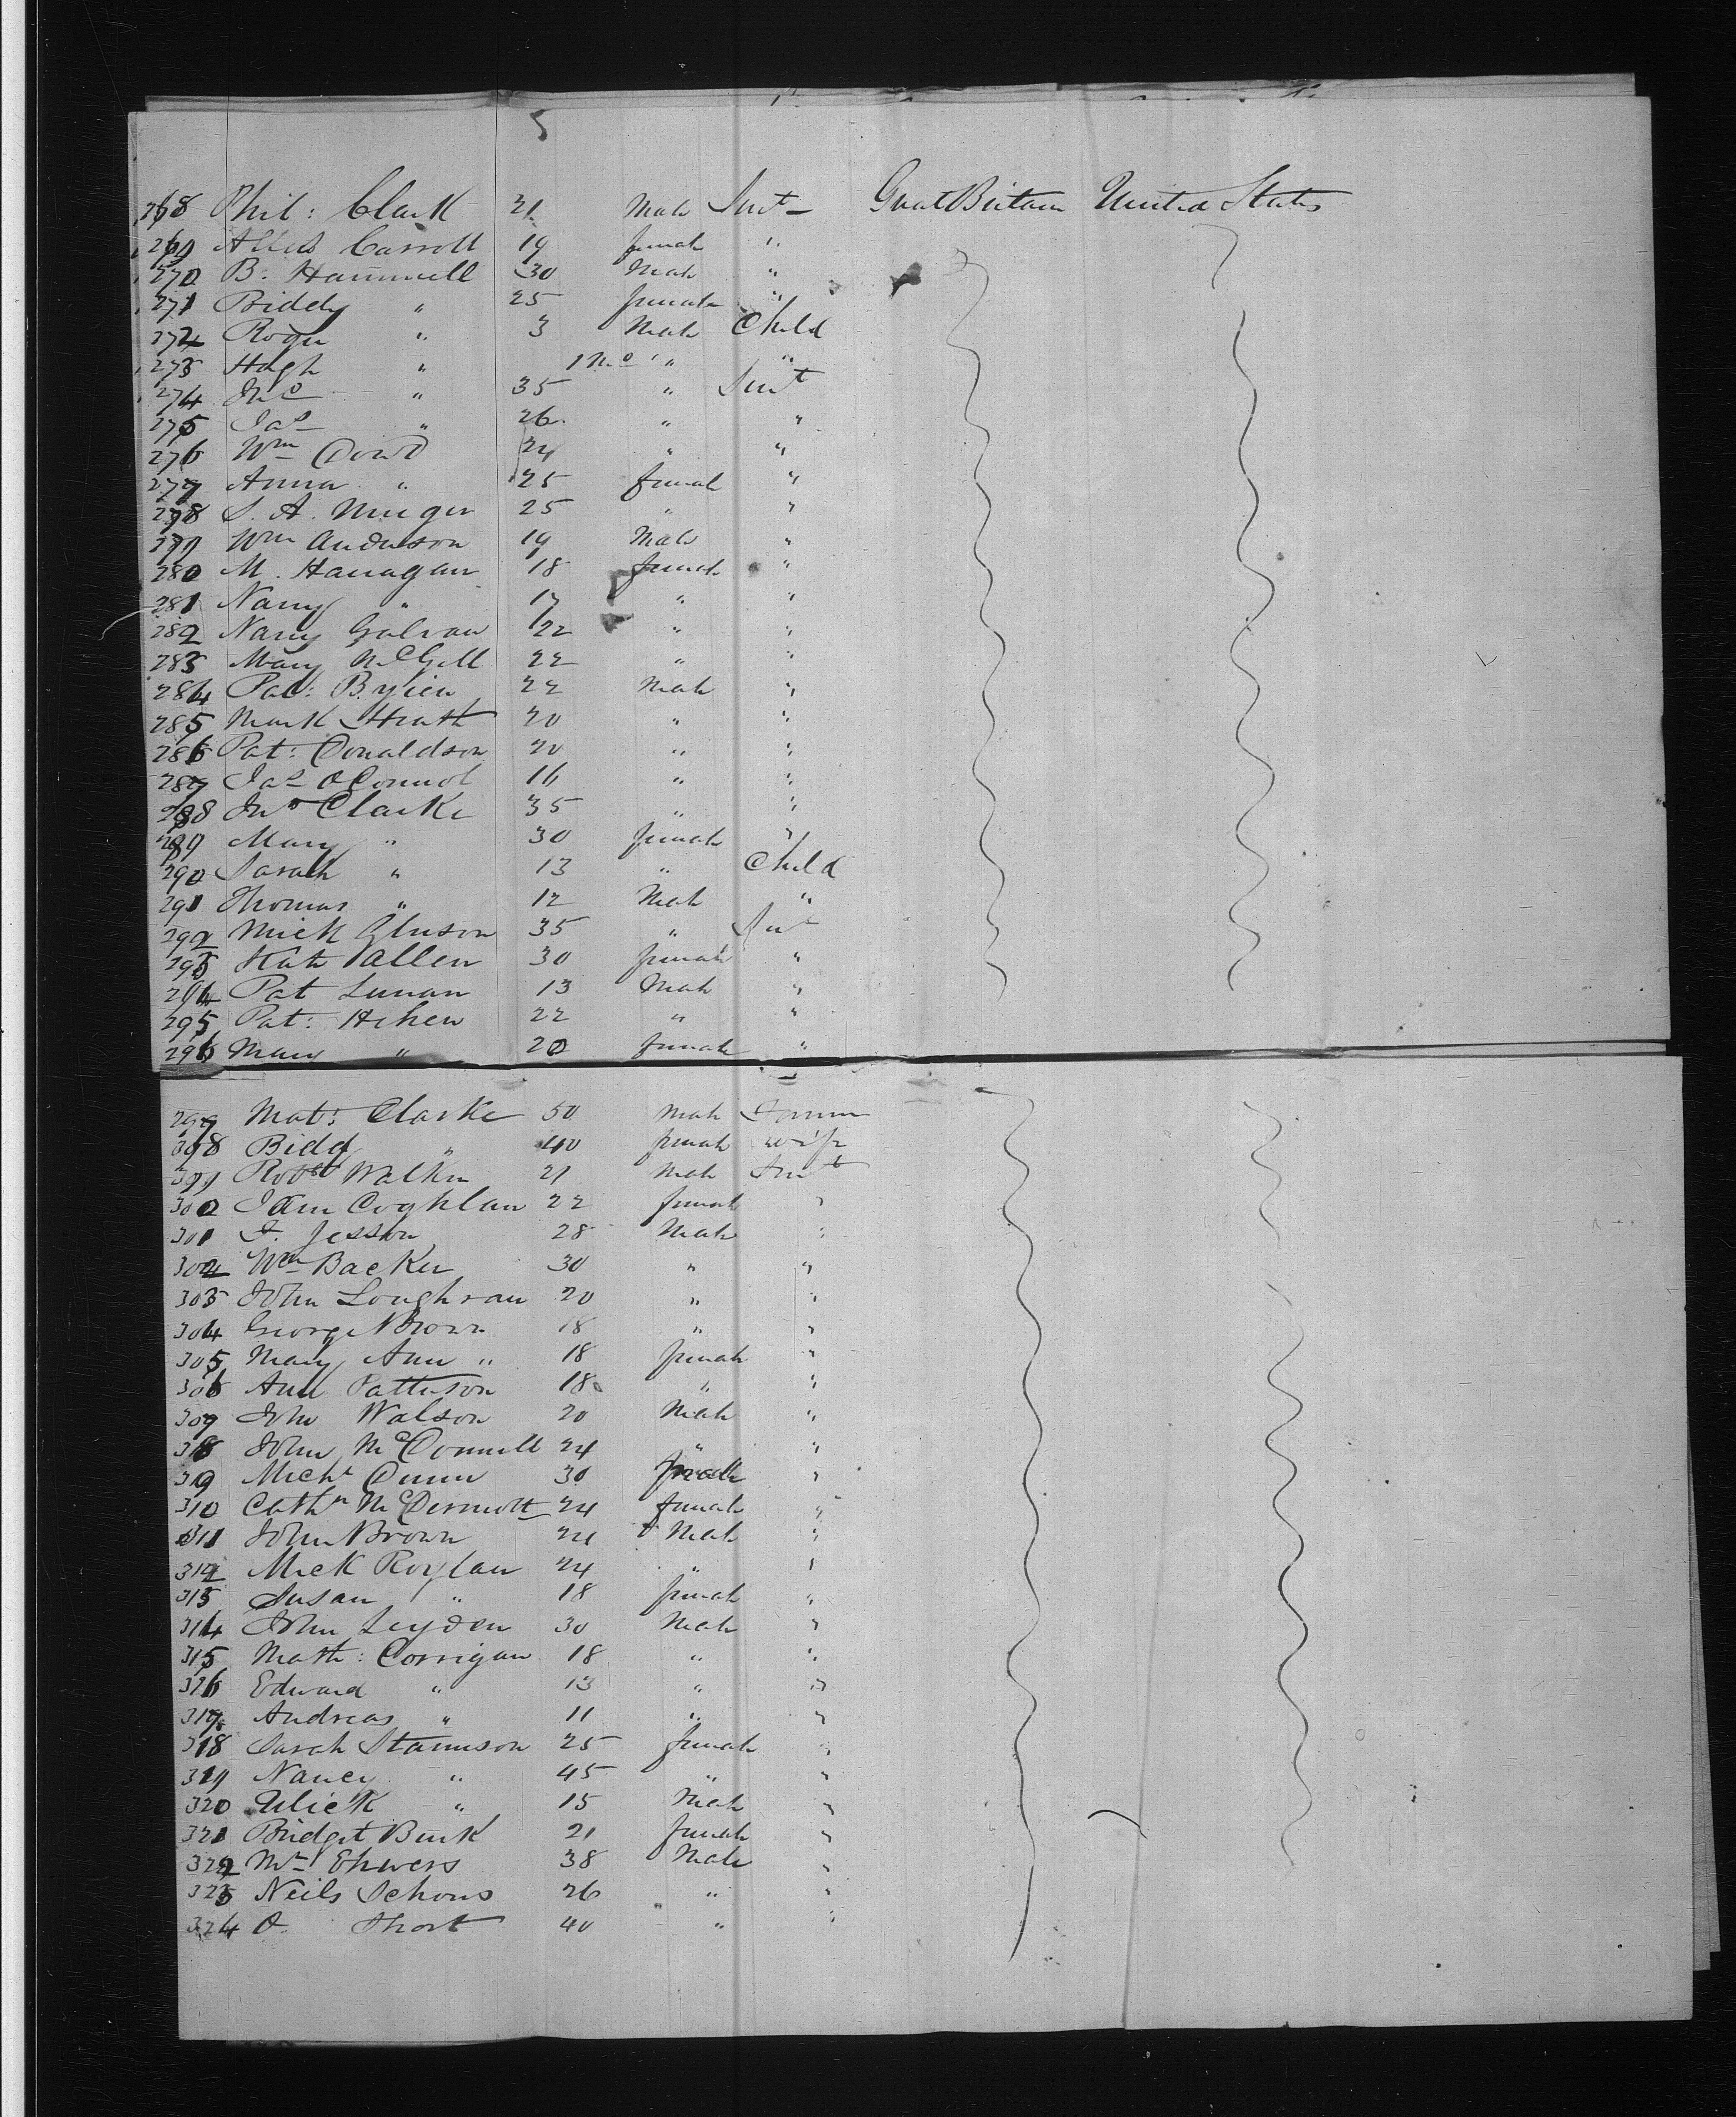 5
268 Phil: Clark 21 Male Sert Great Britain United States
269 Carroll 19 female "
270 B. Hammell 30 Male "
271 Biddy " 25 female "
272 Roger " 3 Male Child
273 Hugh " 1 Mo " "
274 Jno " 35 " Sert
275 Jas " 26 " "
276 Wm Dowd 24 " "
277 Anna " 25 female "
278 S. A. 25 " "
279 Wm Anderson 19 Male "
280 M. Hanagan 18 female "
281 Nany " 17 " "
282 Nany Galvan 22 " "
283 Mary McGill 22 " "
284 Pat: 22 Male "
285 Mark Heath 20 " "
286 Pat: Donaldson 20 " "
287 Jas OConnol 16 " "
288 Jno Clarke 35 " "
289 Mary " 30 female "
290 Sarah " 13 " Child
291 Thomas " 12 Male "
292 Mick Gleeson 35 " Sert
293 Kate Allen 30 female "
294 Pat Lunan 13 Male "
295 Pat: 22 " "
296 Mary " 20 female "
297 Mat: Clarke 50 Male Farmer
298 Bidd " 40 female wife
299 Robt Walker 21 Male Sert
300 Coghlan 22 female "
301 Jesson 28 Male "
302 Wm Backer 30 " "
303 John Loughran 20 " "
304 George Brown 18 " "
305 Mary Ann " 18 female "
306 Ann Patterson 18 " "
307 John Walson 20 Male "
308 John McConnell 24 " "
309 Michl Dunn 30 "
310 Cathn McDermott 24 female "
311 John Brown 24 Male "
312 Mick Roylan 24 " "
313 Susan " 18 female "
314 John Leyden 30 Male "
315 Math: Corrigan 18 " "
316 Edward " 13 " "
317 Andreas " 11 " "
318 Sarah Stannison 25 female "
319 Nancy " 45 " "
320 Ulick " 15 Male "
321 Bridget Burk 21 female "
322 Mr Ehwers 38 Male "
323 Neils Schous 26 " "
324 O. Short 40 " "